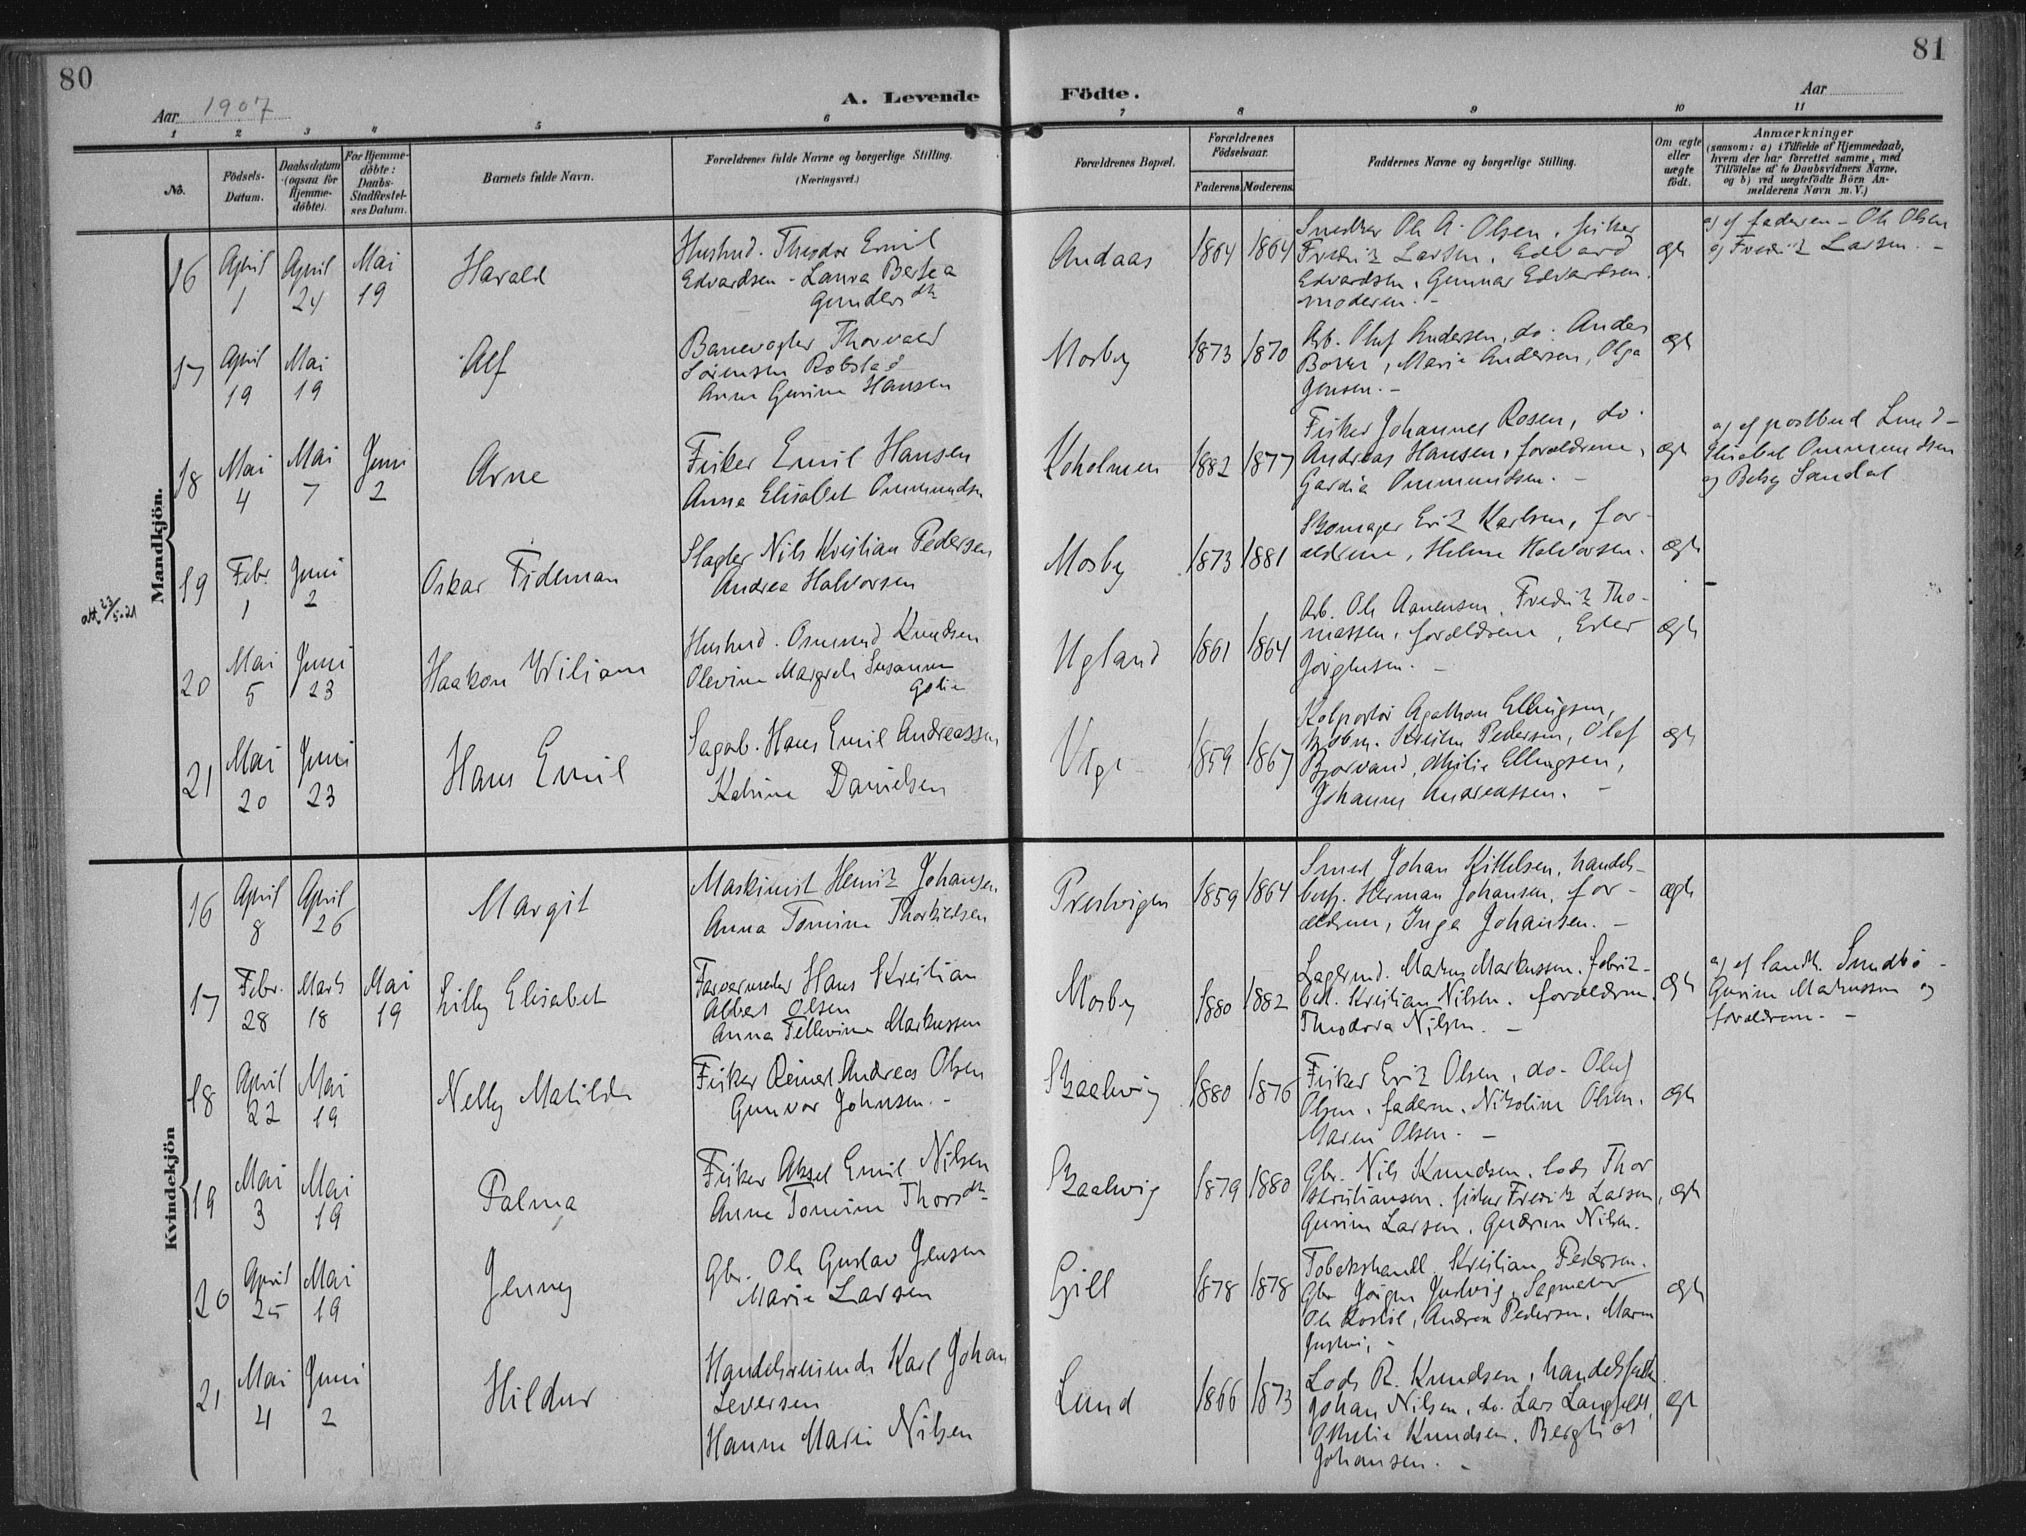 80
81
Aar 1907
A. Levende Födte.
Aar
1 2 3 4 5 6 7 8 9 10 11
No.
Födsels-Datum.
Daabsdatum (ogsaa for Hjemme-döbte).
For Hjemme-döbte: Daabs-Stadfæstel-ses Datum.
Barnets fulde Navn.
Forældrenes fulde Navne og borgerlige Stilling.
(Næringsvei.)
Forældrenes Bopæl.
Forældrenes Födselsaar.
Faderens. Moderens.
Faddernes Navne og borgerlige Stilling.
Om ægte eller uægte födt.
Anmærkninger
(saasom: a) i Tilfælde af Hjemmedaab,
hvem der har forrettet samme, med
Tilföielse af to Daabsvidners Navne,
og b) ved uægtefödte Börn An-
melderens Navn m. V.)
Mandkjön.
16 April 1 April 24 Mai 19 Harald
Husmd. Theodor Emil
Edvardsen - Laura Bertea
Gundersdtr
Andaas 1864 1864
Snedker Ole A. Olsen, fisker
Fredrik Larsen, Edvard
Edvardsen, Gunnar Edvardsen
moderen. -
ægte
a) af faderen - Ole Olsen
og Fredrik Larsen. -
17 April 19 Mai 19 Alf
Banevogter Thorvald
Sörensen Robstad
Anna Gurine Hansen
Mosby 1873 1870
Arb. Oluf Andersen, do. Anders
Boven, Marie Andersen, Olga
Jensen. -
ægte
18 Mai 4 Mai 7 Juni 2 Arne
Fisker Emil Hansen
Anna Elisabet Ommundsen
Koholmen 1882 1877
Fisker Johannes Rosen, do.
Andreas Hansen, forældrene,
Gardia Ommundsen. -
ægte
a) af postbud Lund -
Elisabet Ommundsen
og Betsy Sandal
19 Febr. 1 Juni 2 Oskar Fideman
Slagter Nils Kristian Pedersen
Andrea Halvorsen
Mosby 1873 1881
Skomager Erik Karlsen, for-
ældrene, Helene Halvorsen.
ægte
att 23/5-21
20 Mai 5 Juni 23 Haakon Wiliam
Husmd. Osmund Knudsen
Olevine Margrete Susanne
Ugland 1861 1864
Arb. Ole Aanensen, Fredrik Tho-
massen, forældrene, Ester
Jörgensen. -
ægte
21 Mai 20 Juni 23 Hans Emil
Sagarb. Hans Emil Andreassen
Katrine Danielsen
1859 1867
Kolportör Agathon Ellingsen,
Pedersen, Olaf
Bjorvand, Ellingsen,
Johanne Andreassen. -
ægte
Kvindekjön
16 April 8 April 26 Margit
Maskinist Henrik Johansen
Anna Tomine Thorkildsen
Prestvigen 1859 1864
Smed Johan Kittelsen, handels-
bestf. Herman Johansen, for-
ældrene, Inga Johansen. -
ægte
17 Febr. 28 Marts 18 Mai 19 Lilly Elisabet
Farvermester Hans Kristian
Albert Olsen
Anna Tellevine Markussen
Mosby 1880 1882
Lagermd. Markus Markussen, fabrik-
best. Kristian Nilsen, forældrene
Theodora Nilsen. -
ægte
a) af landh. Sundbö -
Gurine Markussen og
forældrene. -
18 April 22 Mai 19 Nelly Matilde
Fisker Reinert Andreas Olsen
Gunvor Johnsen. -
Skaalevig 1880 1876
Fisker Erik Olsen, do. Oluf
Olsen, faderen, Nikoline Olsen,
Maren Olsen. -
ægte
19 Mai 3 Mai 19 Palma
Fisker Aksel Emil Nilsen
Anne Tomine Thorsdtr
Skaalevig 1879 1880
Gbr. Nils Knudsen, lods Thor
Kristiansen, fisker Fredrik Larsen,
Gurine Larsen, Gudrun Nilsen.
ægte
20 April 25 Mai 19 Jenny
Gbr. Ole Gustav Jensen
Marie Larsen
Gill 1878 1878
Tobakshandl. Kristian Pedersen.
Gbr. Jörgen Justvig, Sagmester
Ole Kostöl, Andrea Pedersen, Maren
Justvig, -
ægte
21 Mai 4 Juni 2 Hildur
Handelsreisende Karl Johan
Seversen
Hanna Marie Nilsen
Lund 1866 1873
Lods R. Knudsen, handelsfuldm.
Johan Nilsen, do. Lars Langfeldt,
Othelie Knudsen, Bergliot
Johansen. -
ægte